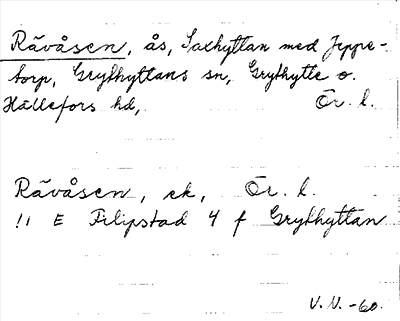 Rävåsen, ås, Saxhyttan med Jeppe-
torp, Grythyttans sn, Grythytte o.
Hällefors hd, Ör. l.
Rävåsen, ek, Ör. l.
!! E Filipstad 4 f Grythyttan
V. N. -60.